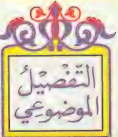 التَّفْصِيلُ
المَوضُوعِي